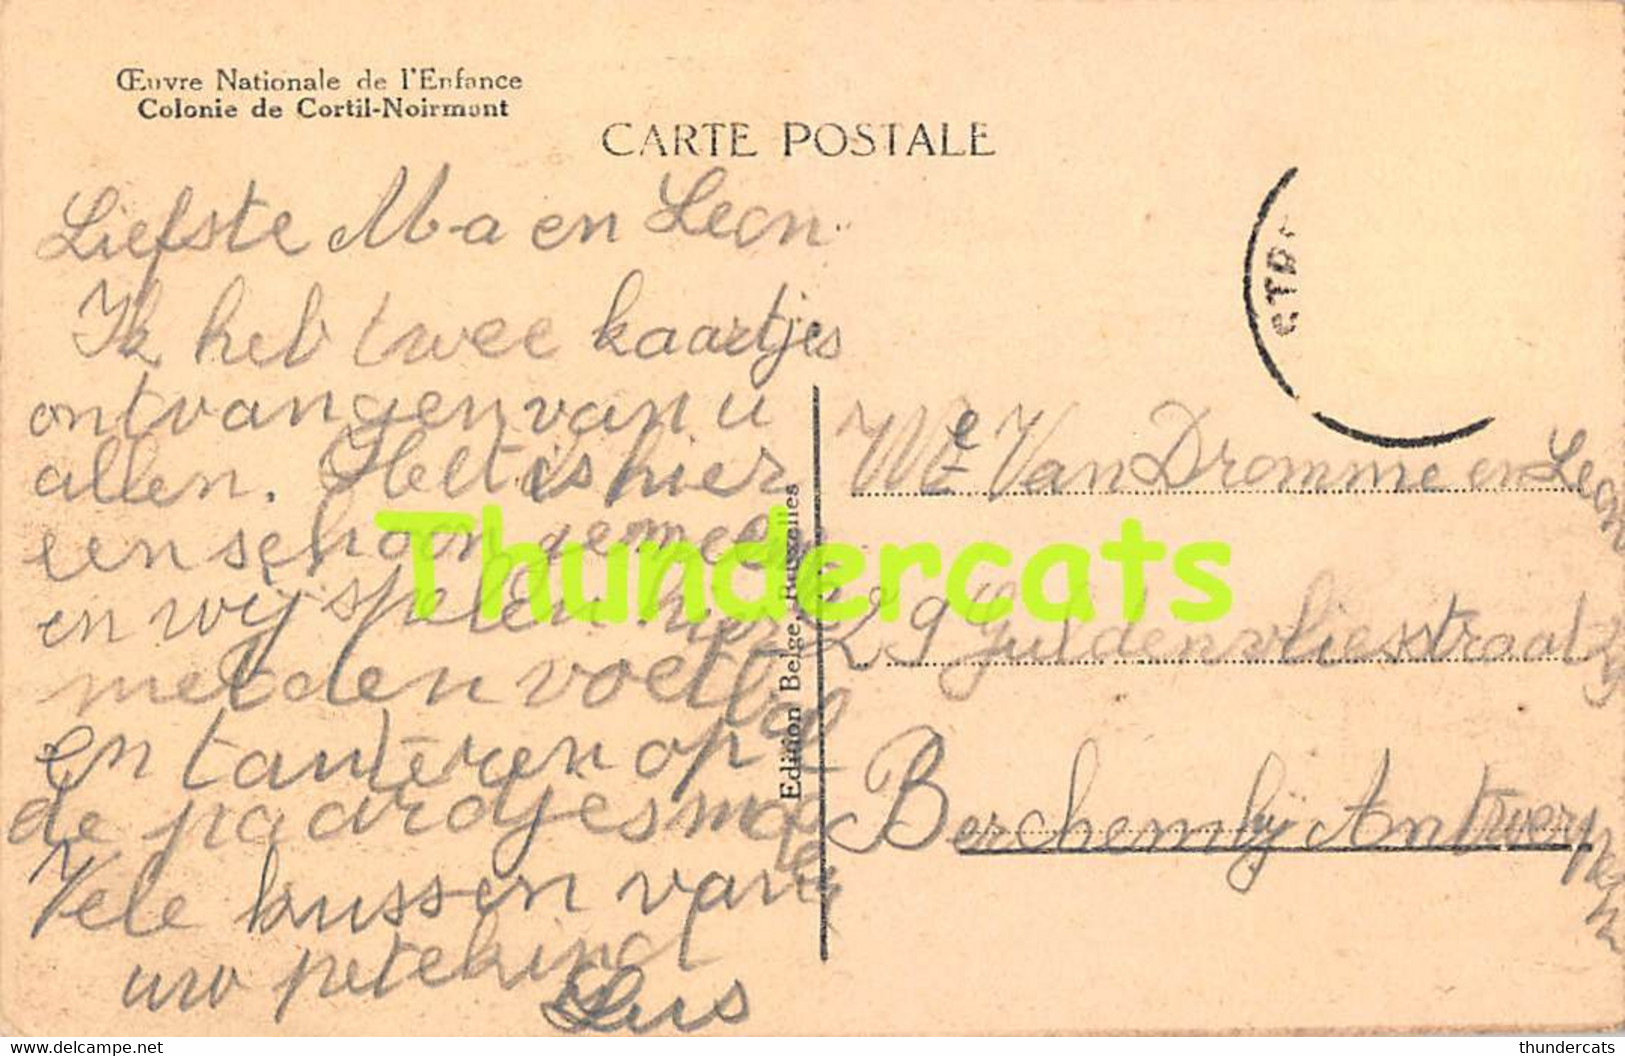 Œuvre Nationale de l'Enfance
Colonie de Cortil-Noirmont
CARTE POSTALE
Liefste M-a en Leon
Ik heb twee kaartjes
ontvangen van u
allen. Het is hier
een schoon gemeente
en wij spelen hier
met den voetbal
en op
de paardjes
Vele kussen van
uw petekind
Edition Belge, Bruxelles
We Van Dromme en Leon
29 Guldenvliesstraat
Berchem bij Antwerpen
Thundercats
delcampe.net
thundercats